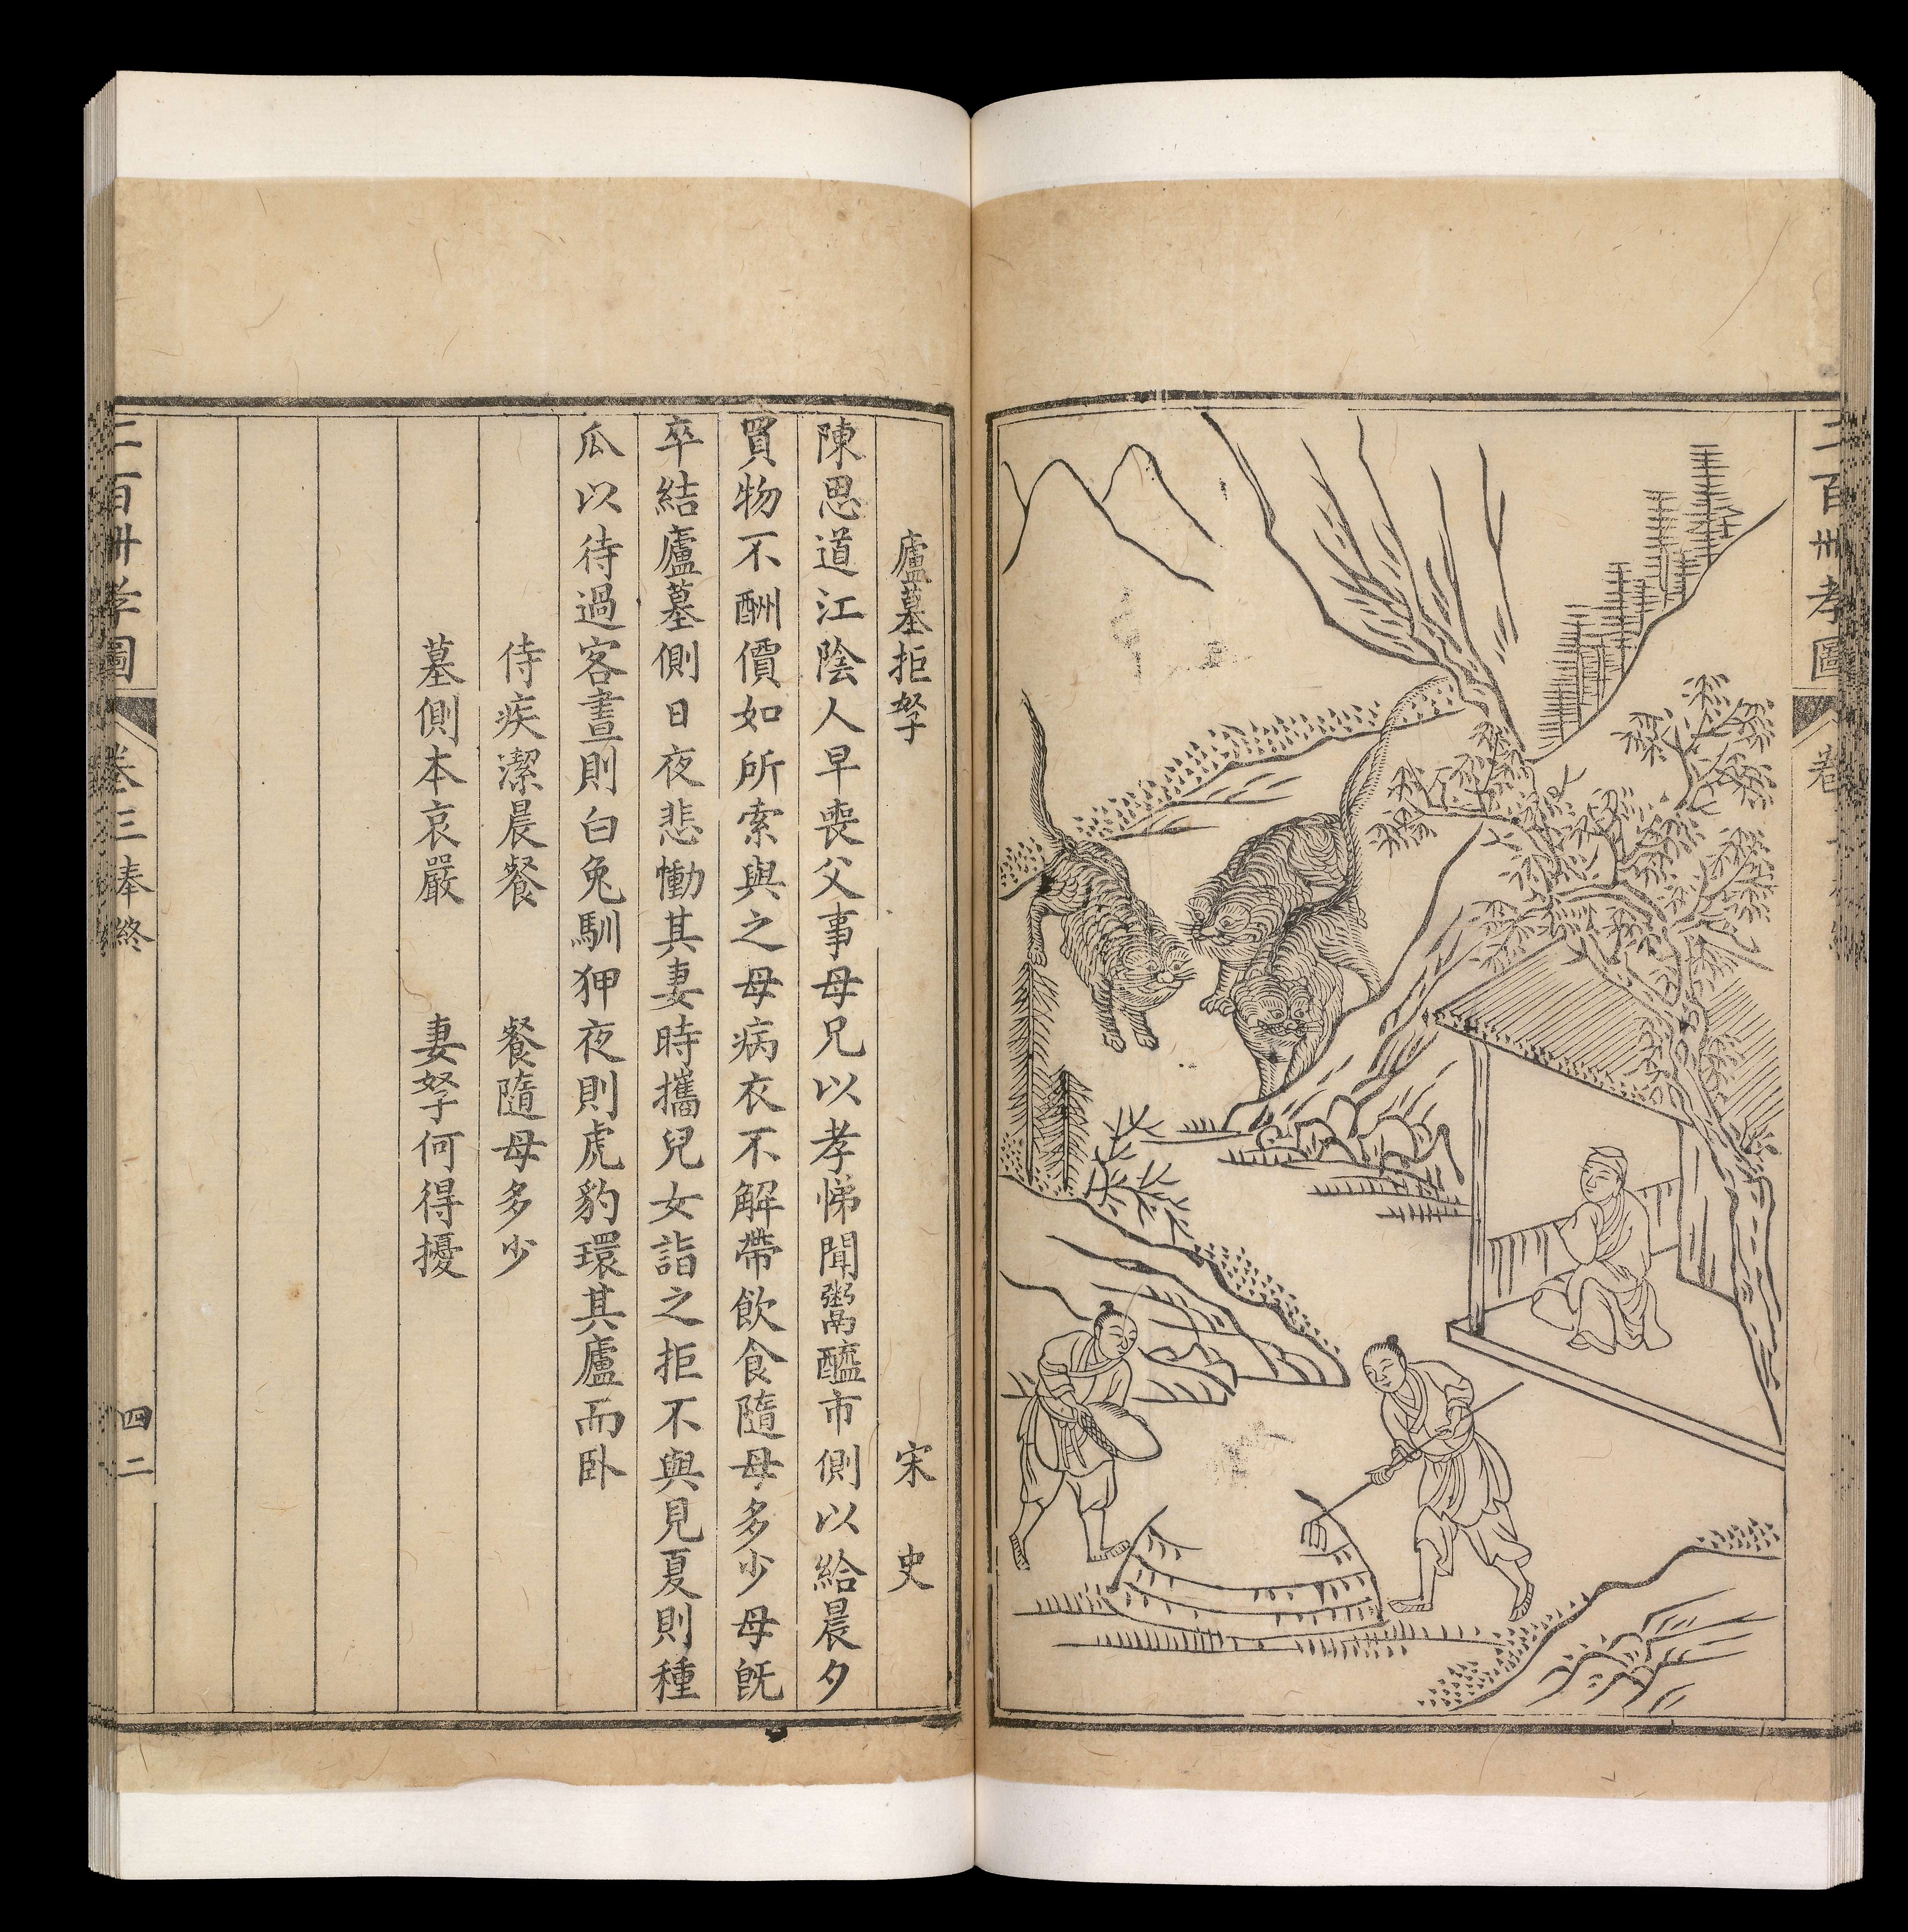 二百卌孝圖
卷
廬墓拒孥 宋史
陳思道江陰人早喪父事母兄以孝悌聞鬻醯市側以給晨夕
買物不酬價如所索與之母病衣不解帶飲食隨母多少母旣
卒結廬墓側日夜悲慟其妻時攜兒女詣之拒不與見夏則種
瓜以待過客晝則白兔馴狎夜則虎豹環其廬而卧
侍疾潔晨餐 餐隨母多少
墓側本哀嚴 妻孥何得擾
二百卌孝圖 卷三奉終 四二